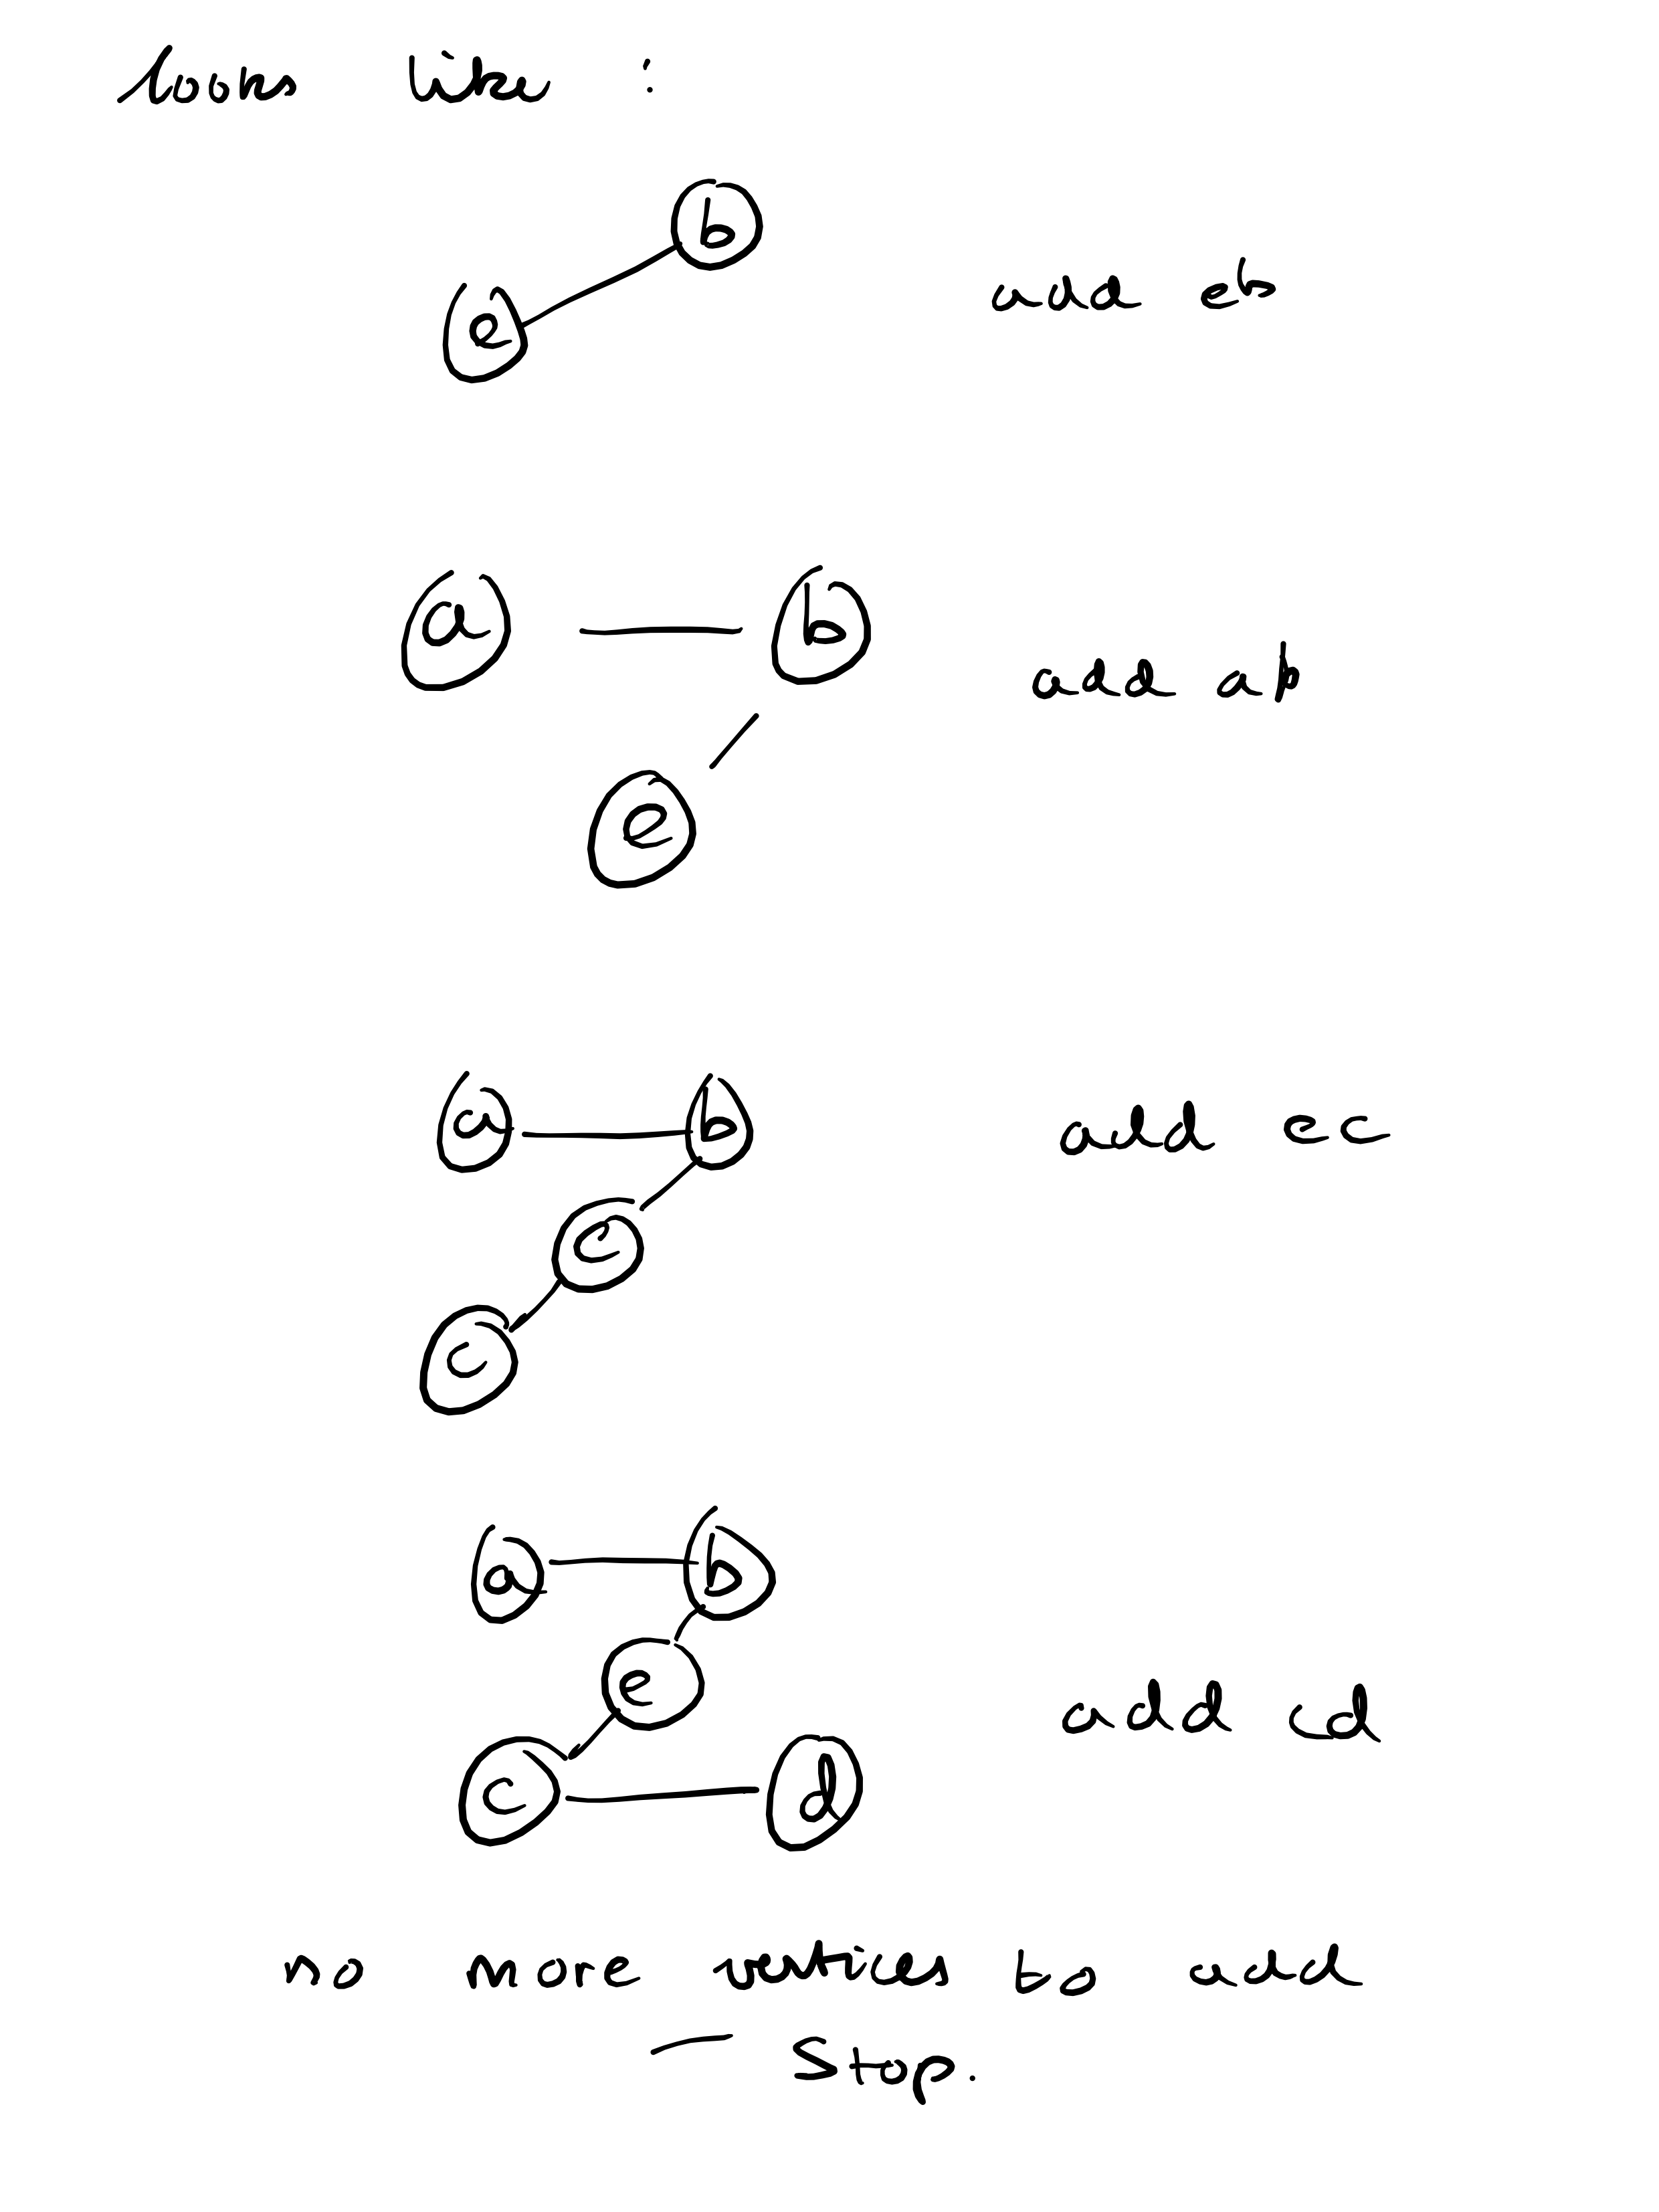 looks like :
b
e
add eb
a b
add ab
e
a b
add ec
e
c
a b
e
add cd
c d
no more vertices to add
— Stop.